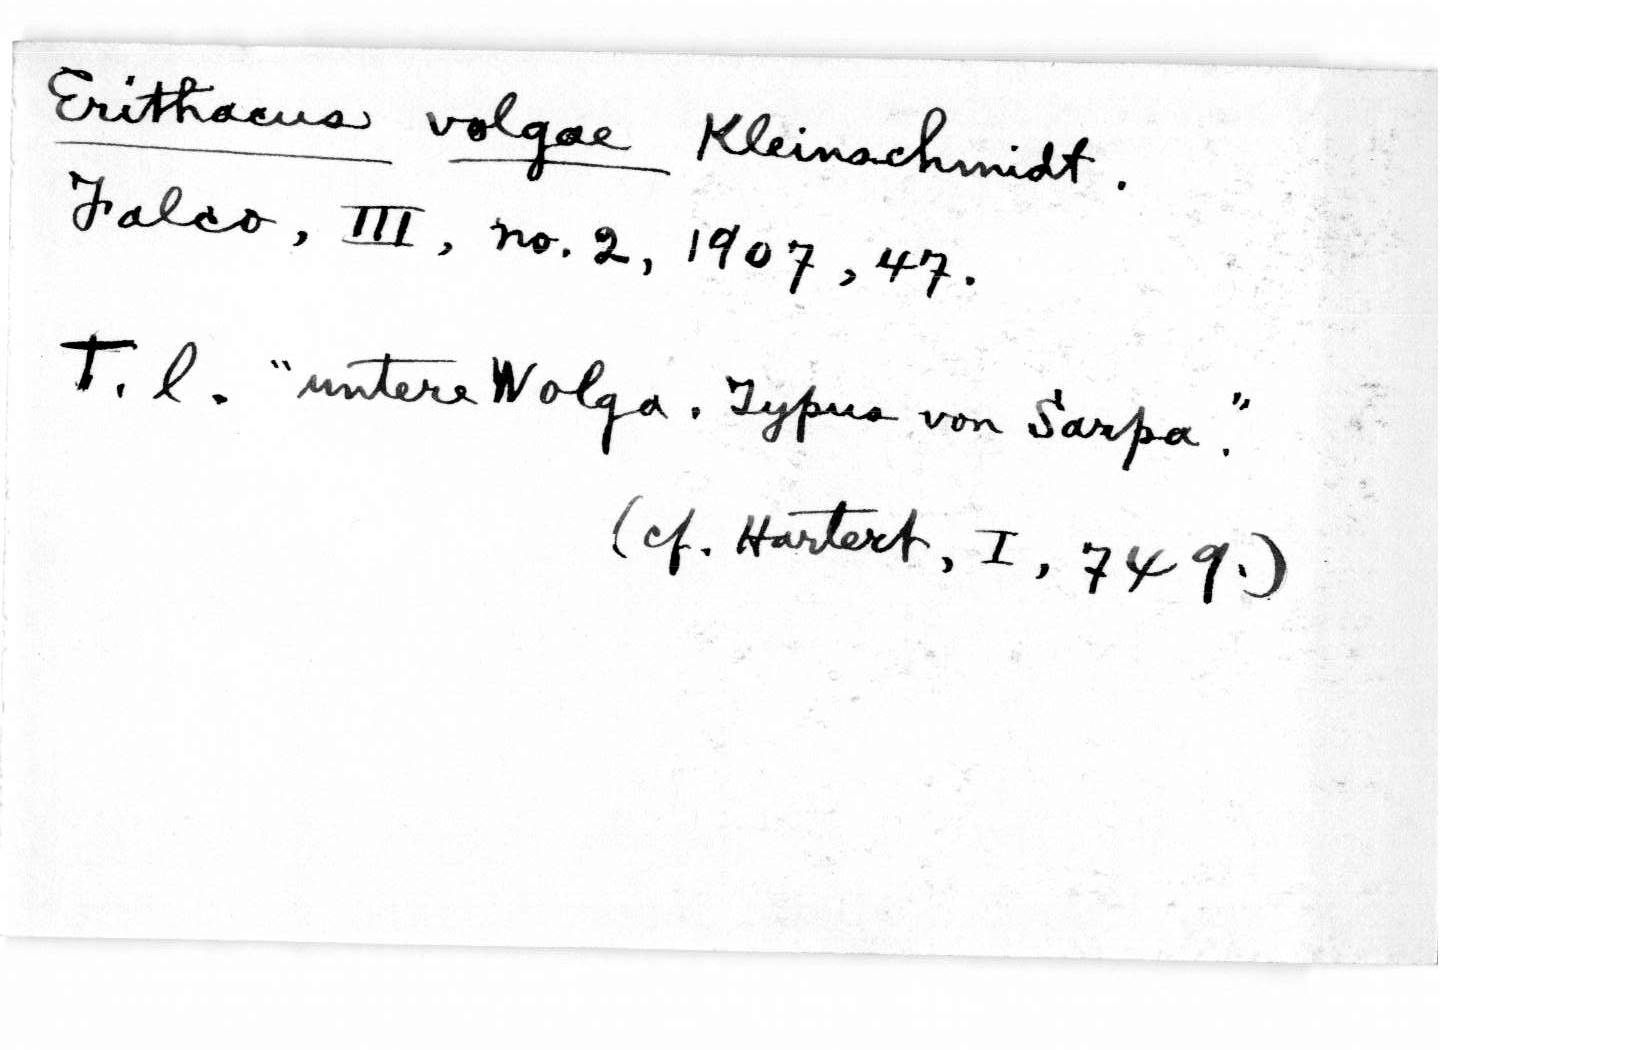 Erithacus volgae Kleinschmidt.
Falco, III, no. 2, 1907, 47.
T. l. "untere Wolga. Typus von Sarpa."
(cf. Hartert, I, 749.)